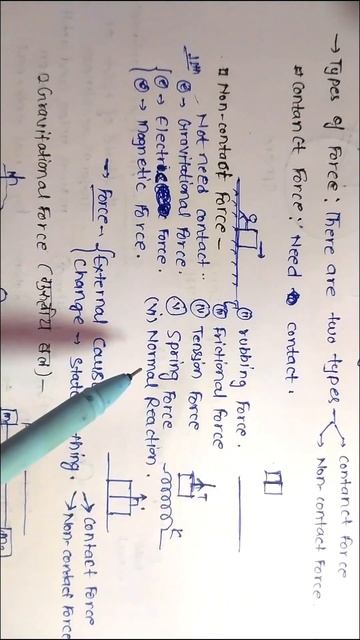 → Types of Force: There are two types → contanct force
→ Non-contact Force.
# Contanct Force: Need contact.
(ii) rubbing Force.
(iii) Frictional Force
(iv) Tension Force T
(v) Spring Force K
(vi) Normal Reaction.
Non-contact Force –
Not need contact..
→ Gravitational Force.
→ Electric Force.
→ Magnetic Force.
→ Force → External Caus
Change → Stat thing.
→ Contact Force
→ Non-contact Force
Gravitational Force (गुरुत्वीय बल) –